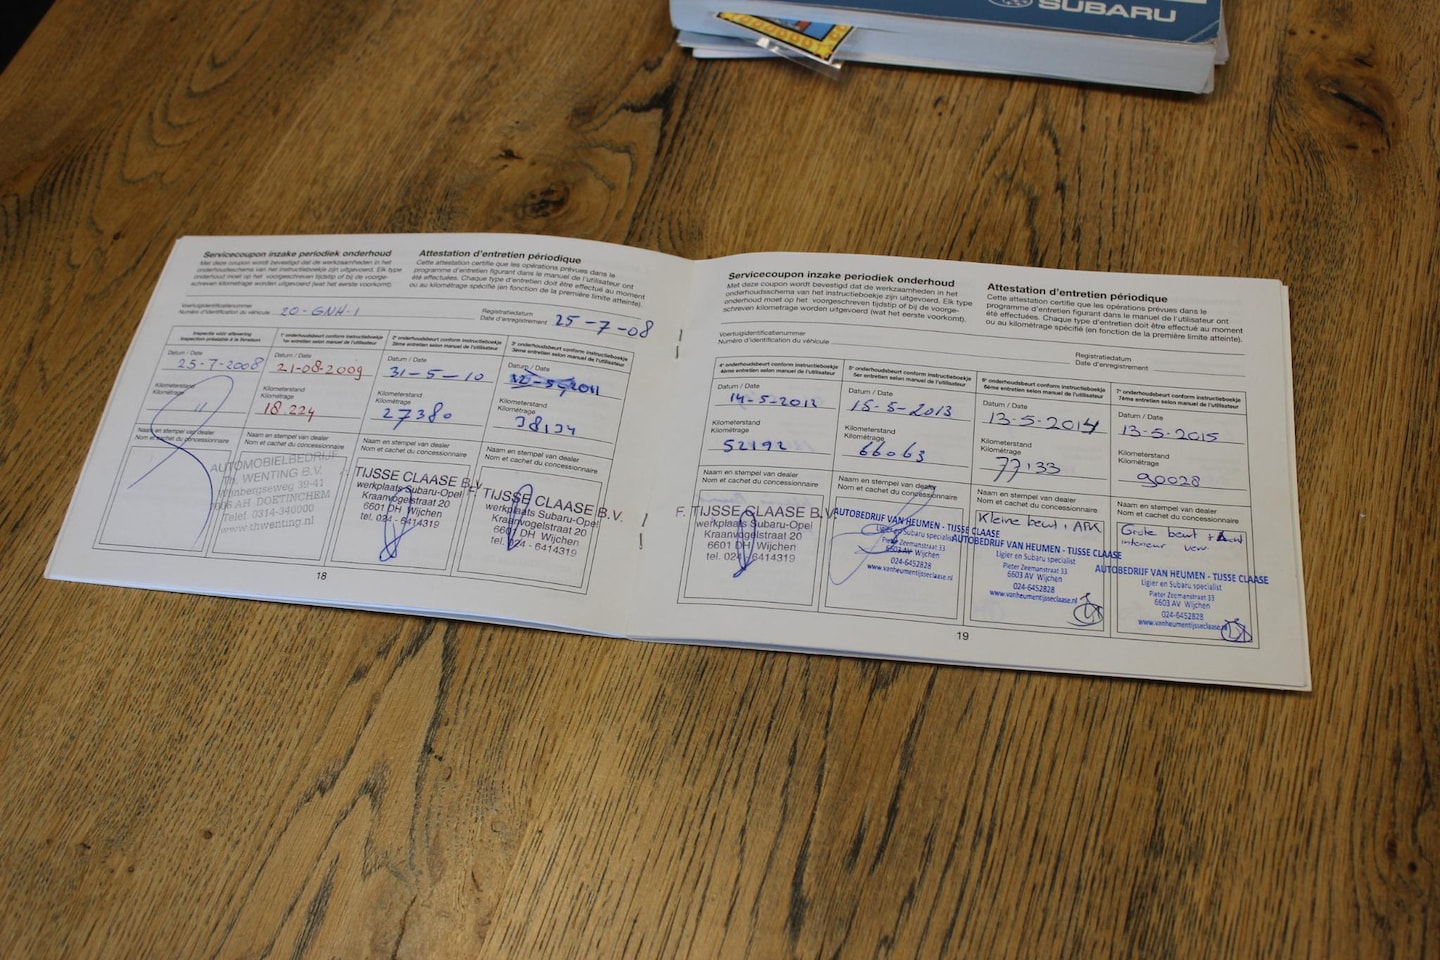 SUBARU
Servicecoupon inzake periodiek onderhoud
Met deze coupon wordt bevestigd dat de werkzaamheden in het
onderhoudsschema van het instructieboekje zijn uitgevoerd. Elk type
onderhoud moet op het voorgeschreven tijdstip of bij de voorge-
schreven kilometrage worden uitgevoerd (wat het eerste voorkomt).
Attestation d'entretien périodique
Cette attestation certifie que les opérations prévues dans le
programme d'entretien figurant dans le manuel de l'utilisateur ont
été effectuées. Chaque type d'entretien doit être effectué au moment
ou au kilométrage spécifié (en fonction de la première limite atteinte).
Voertuigidentificatienummer
Numéro d'identification du véhicule 20-GNH-1
Registratiedatum
Date d'enregistrement 25-7-08
Inspectie vóór aflevering
Inspection préalable à la livraison
Datum / Date
25-7-2008
Kilometerstand
Kilométrage
11
Naam en stempel van dealer
Nom et cachet du concessionnaire
1e onderhoudsbeurt conform instructieboekje
1er entretien selon manuel de l'utilisateur
Datum / Date
21-08-2009
Kilometerstand
Kilométrage
18.224
Naam en stempel van dealer
Nom et cachet du concessionnaire
AUTOMOBIELBEDRIJF
Th. WENTING B.V.
DOETINCHEM
Telef. 0314-340000
www.thwenting.nl
2e onderhoudsbeurt conform instructieboekje
2ème entretien selon manuel de l'utilisateur
Datum / Date
31-5-10
Kilometerstand
Kilométrage
27380
Naam en stempel van dealer
Nom et cachet du concessionnaire
TIJSSE CLAASE B.V.
werkplaats Subaru-Opel
Kraanvogelstraat 20
6601 DH Wijchen
tel. 024 - 6414319
3e onderhoudsbeurt conform instructieboekje
3ème entretien selon manuel de l'utilisateur
Datum / Date
12-5-2011
Kilometerstand
Kilométrage
38134
Naam en stempel van dealer
Nom et cachet du concessionnaire
TIJSSE CLAASE B.V.
werkplaats Subaru-Opel
Kraanvogelstraat 20
6601 DH Wijchen
tel. 024 - 6414319
18
Servicecoupon inzake periodiek onderhoud
Met deze coupon wordt bevestigd dat de werkzaamheden in het
onderhoudsschema van het instructieboekje zijn uitgevoerd. Elk type
onderhoud moet op het voorgeschreven tijdstip of bij de voorge-
schreven kilometrage worden uitgevoerd (wat het eerste voorkomt).
Attestation d'entretien périodique
Cette attestation certifie que les opérations prévues dans le
programme d'entretien figurant dans le manuel de l'utilisateur ont
été effectuées. Chaque type d'entretien doit être effectué au moment
ou au kilométrage spécifié (en fonction de la première limite atteinte).
Voertuigidentificatienummer
Numéro d'identification du véhicule
Registratiedatum
Date d'enregistrement
4e onderhoudsbeurt conform instructieboekje
4ème entretien selon manuel de l'utilisateur
Datum / Date
14-5-2012
Kilometerstand
Kilométrage
52192
Naam en stempel van dealer
Nom et cachet du concessionnaire
F. TIJSSE CLAASE B.V.
werkplaats Subaru-Opel
Kraanvogelstraat 20
6601 DH Wijchen
tel. 024 - 6414319
5e onderhoudsbeurt conform instructieboekje
5er entretien selon manuel de l'utilisateur
Datum / Date
15-5-2013
Kilometerstand
Kilométrage
66063
Naam en stempel van dealer
Nom et cachet du concessionnaire
AUTOBEDRIJF VAN HEUMEN - TIJSSE CLAASE
Ligier en Subaru specialist
Pieter Zeemanstraat 33
6603 AV Wijchen
024-6452828
www.vanheumentijsseclaase.nl
6e onderhoudsbeurt conform instructieboekje
6ème entretien selon manuel de l'utilisateur
Datum / Date
13-5-2014
Kilometerstand
Kilométrage
77133
Naam en stempel van dealer
Nom et cachet du concessionnaire
Kleine beurt + APK
AUTOBEDRIJF VAN HEUMEN - TIJSSE CLAASE
Ligier en Subaru specialist
Pieter Zeemanstraat 33
6603 AV Wijchen
024-6452828
www.vanheumentijsseclaase.nl
7e onderhoudsbeurt conform instructieboekje
7ème entretien selon manuel de l'utilisateur
Datum / Date
13-5-2015
Kilometerstand
Kilométrage
90028
Naam en stempel van dealer
Nom et cachet du concessionnaire
Grote beurt +
interieur
AUTOBEDRIJF VAN HEUMEN - TIJSSE CLAASE
Ligier en Subaru specialist
Pieter Zeemanstraat 33
6603 AV Wijchen
024-6452828
www.vanheumentijsseclaase.nl
19